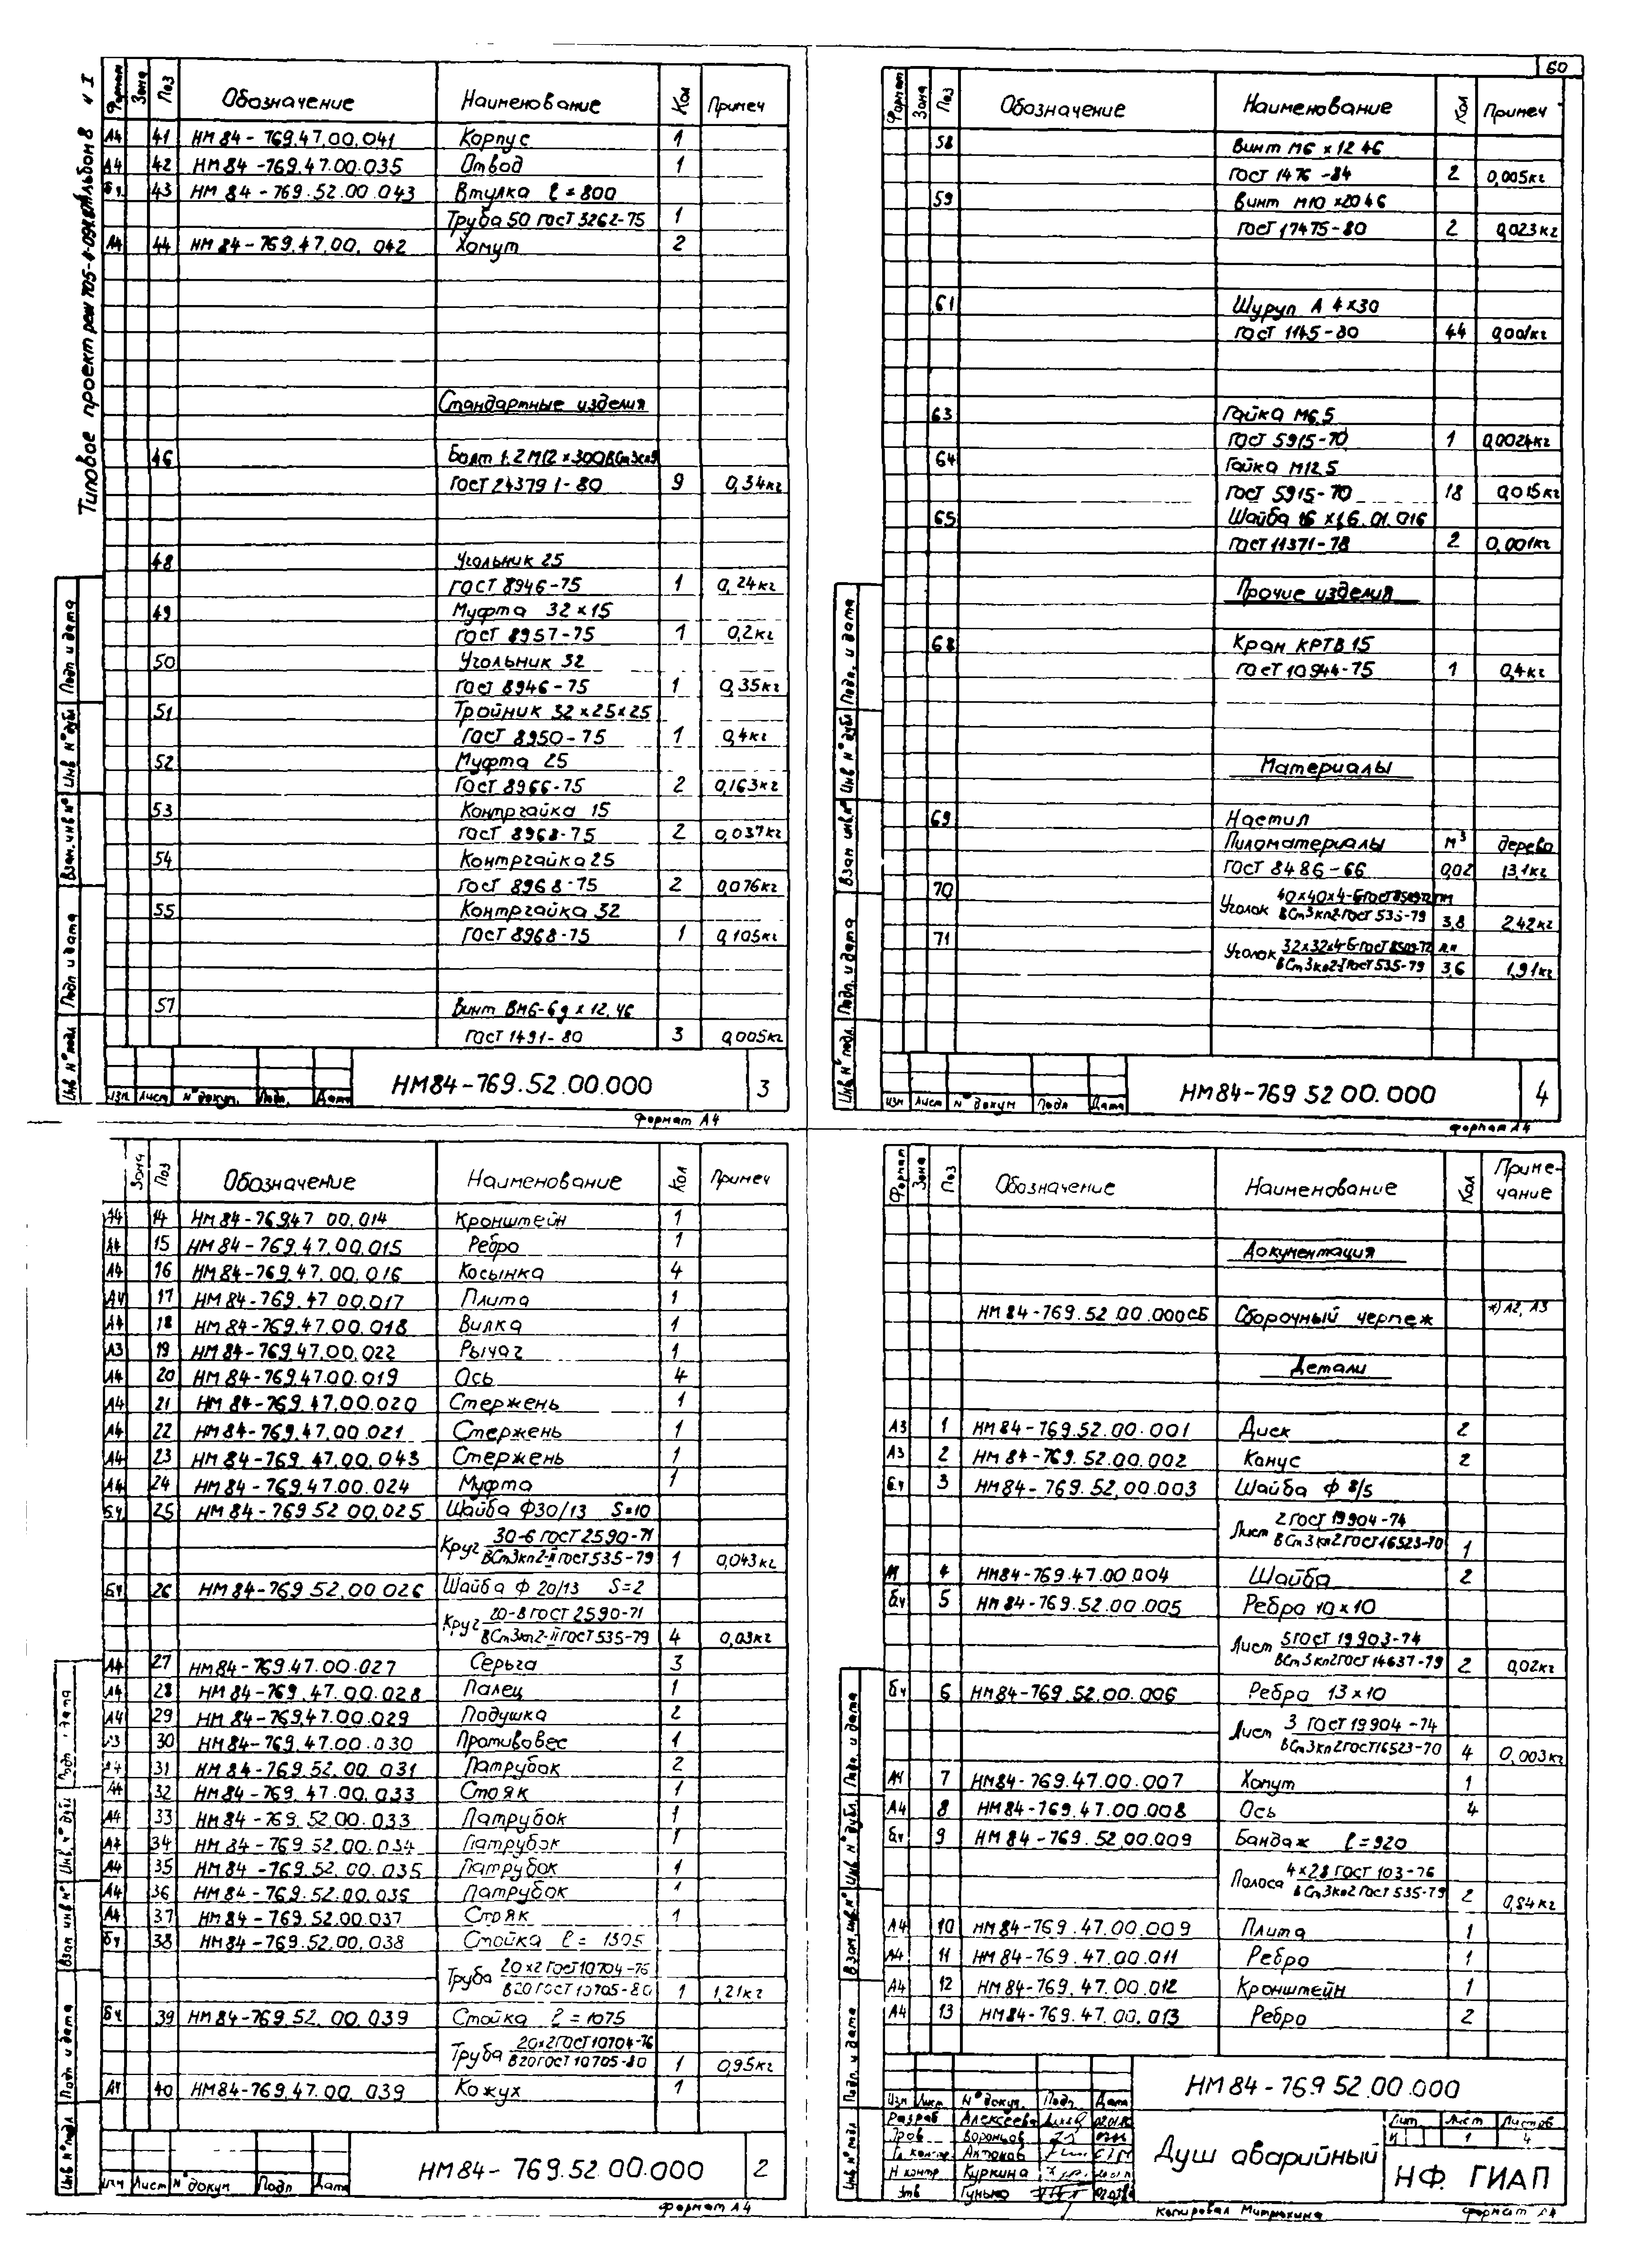 Типовое проект реш 705-1-09 Альбом 8 ч I
Формат Зона Поз Обозначение Наименование Кол Примеч
А4 41 НМ84-769.47.00.041 Корпус 1
А4 42 НМ84-769.47.00.035 Отвод 1
Бч 43 НМ84-769.52.00.043 Втулка ℓ=800
Труба 50 ГОСТ 3262-75 1
А4 44 НМ84-769.47.00.042 Хомут 2
Стандартные изделия
46 Болт 1.2М12×300ВСт3сп5
ГОСТ 24379 1-80 9 0,34кг
48 Угольник 25
ГОСТ 8946-75 1 0,24кг
49 Муфта 32×15
ГОСТ 8957-75 1 0,2кг
50 Угольник 32
ГОСТ 8946-75 1 0,35кг
51 Тройник 32×25×25
ГОСТ 8950-75 1 0,4кг
52 Муфта 25
ГОСТ 8966-75 2 0,163кг
53 Контргайка 15
ГОСТ 8968-75 2 0,037кг
54 Контргайка 25
ГОСТ 8968-75 2 0,076кг
55 Контргайка 32
ГОСТ 8968-75 1 0,105кг
57 Винт ВМ6-6g×12.46
ГОСТ 1491-80 3 0,005кг
Инв № подл. Подп и дата Взам. инв № Инв № дубл Подп и дата
Изм. Лист № докум. Подп. Дата
НМ84-769.52.00.000 3
Формат А4
60
Формат Зона Поз Обозначение Наименование Кол Примеч
58 Винт М6×12 46
ГОСТ 1476-84 2 0,005кг
59 Винт М10×20 46
ГОСТ 17475-80 2 0,023кг
61 Шуруп А 4×30
ГОСТ 1145-80 44 0,001кг
63 Гайка М6.5
ГОСТ 5915-70 1 0,0024кг
64 Гайка М12.5
ГОСТ 5915-70 18 0,015кг
65 Шайба 16×1,6.01.016
ГОСТ 11371-78 2 0,001кг
Прочие изделия
68 Кран КРТВ 15
ГОСТ 10944-75 1 0,4кг
Материалы
69 Настил
Пиломатериалы м³ дерево
ГОСТ 8486-66 0,02 13,1кг
70 Уголок 40×40×4-Б ГОСТ 8509-72 пм
ВСт3кп2 ГОСТ 535-79 3,8 2,42кг
71 Уголок 32×32×4-Б ГОСТ 8509-72 пм
ВСт3кп2-I ГОСТ 535-79 3,6 1,91кг
Инв № подл. Подп. и дата Взам инв.№ Инв № дубл Подп. и дата
Изм Лист № докум Подп Дата
НМ84-769 52 00.000 4
Формат А4
Зона Поз Обозначение Наименование Кол Примеч
А4 14 НМ84-769.47 00.014 Кронштейн 1
А4 15 НМ84-769.47.00.015 Ребро 1
А4 16 НМ84-769.47.00.016 Косынка 4
А4 17 НМ84-769.47 00.017 Плита 1
А4 18 НМ84-769.47.00.018 Вилка 1
А3 19 НМ84-769.47.00.022 Рычаг 1
А4 20 НМ84-769.47.00.019 Ось 4
А4 21 НМ84-769.47.00.020 Стержень 1
А4 22 НМ84-769.47.00.021 Стержень 1
А4 23 НМ84-769.47.00.043 Стержень 1
А4 24 НМ84-769.47.00.024 Муфта 1
Бч 25 НМ84-769.52 00.025 Шайба Ф30/13 S=10
Круг 30-6 ГОСТ 2590-71
ВСт3кп2-II ГОСТ 535-79 1 0,043кг
Бч 26 НМ84-769.52.00.026 Шайба Ф 20/13 S=2
Круг 20-8 ГОСТ 2590-71
ВСт3кп2-II ГОСТ 535-79 4 0,03кг
А4 27 НМ84-769.47.00.027 Серьга 3
А4 28 НМ84-769.47.00.028 Палец 1
А4 29 НМ84-769.47.00.029 Подушка 2
А3 30 НМ84-769.47.00.030 Противовес 1
А4 31 НМ84-769.52.00.031 Патрубок 2
А4 32 НМ84-769.47.00.033 Стояк 1
А4 33 НМ84-769.52.00.033 Патрубок 1
А4 34 НМ84-769.52.00.034 Патрубок 1
А4 35 НМ84-769.52.00.035 Патрубок 1
А4 36 НМ84-769.52.00.036 Патрубок 1
А4 37 НМ84-769.52.00.037 Стояк 1
Бч 38 НМ84-769.52.00.038 Стойка ℓ=1305
Труба 20×2 ГОСТ 10704-76
В20 ГОСТ 10705-80 1 1,21кг
Бч 39 НМ84-769.52.00.039 Стойка ℓ=1075
Труба 20×2 ГОСТ 10704-76
В20 ГОСТ 10705-80 1 0,95кг
А4 40 НМ84-769.47.00.039 Кожух 1
Инв № подл Подп и дата Взам инв № Инв. № дубл. Подп. и дата
Изм Лист № докум Подп Дата
НМ84-769.52.00.000 2
Формат А4
Формат Зона Поз Обозначение Наименование Кол Приме-
чание
Документация
НМ84-769.52.00.000СБ Сборочный чертеж *) А2, А3
Детали
А3 1 НМ84-769.52.00.001 Диск 2
А3 2 НМ84-769.52.00.002 Конус 2
Б.ч 3 НМ84-769.52.00.003 Шайба Ф 8/5
Лист 2 ГОСТ 19904-74
ВСт3кп2 ГОСТ 16523-70 1
4 НМ84-769.47.00.004 Шайба 2
Б.ч 5 НМ84-769.52.00.005 Ребро 10×10
Лист 5 ГОСТ 19903-74
ВСт3кп2 ГОСТ 14637-79 2 0,02кг
Бч 6 НМ84-769.52.00.006 Ребро 13×10
Лист 3 ГОСТ 19904-74
ВСт3кп2 ГОСТ 16523-70 4 0,003кг
А4 7 НМ84-769.47.00.007 Хомут 1
А4 8 НМ84-769.47.00.008 Ось 4
Б.ч 9 НМ84-769.52.00.009 Бандаж ℓ=920
Полоса 4×28 ГОСТ 103-76
ВСт3кп2 ГОСТ 535-79 2 0,84кг
А4 10 НМ84-769.47.00.009 Плита 1
А4 11 НМ84-769.47.00.011 Ребро 1
А4 12 НМ84-769.47.00.012 Кронштейн 1
А4 13 НМ84-769.47.00.013 Ребро 2
Инв № подл Подп. и дата Взам. инв.№ Инв № дубл. Подп. и дата
Изм Лист № докум. Подп. Дата
НМ84-769 52.00.000
Разраб Алексеева
Пров Воронцов
Гл. контр Антонов
Н контр Куркина
Утв Гунько
Душ аварийный
Лит Лист Листов
И 1 4
НФ ГИАП
Копировал Митрохина Формат А4